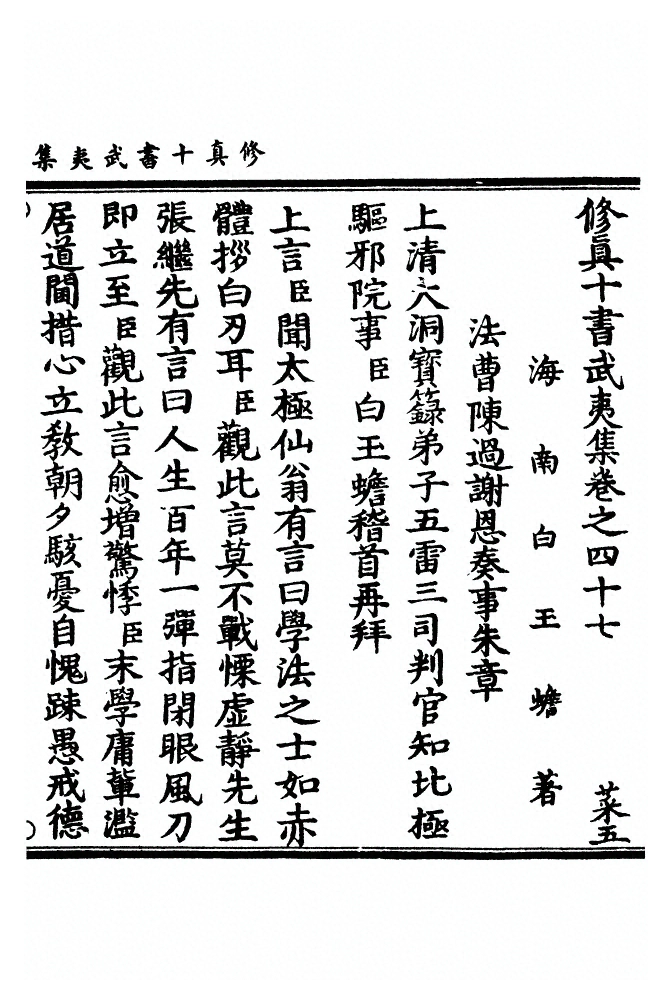 修真十書武夷集
修眞十書武夷集卷之四十七 菜五
海南白玉蟾著
法曹陳過謝恩奏事朱章
上清大洞寶籙弟子五雷三司判官知北極
驅邪院事臣白玉蟾稽首再拜
上言臣聞太極仙翁有言曰學法之士如赤
體挼白刃耳臣觀此言莫不戰慄虛靜先生
張繼先有言曰人生百年一彈指閉眼風刀
即立至臣觀此言愈增驚悸臣末學庸輩濫
居道閫措心立教朝夕駭憂自愧踈愚戒德